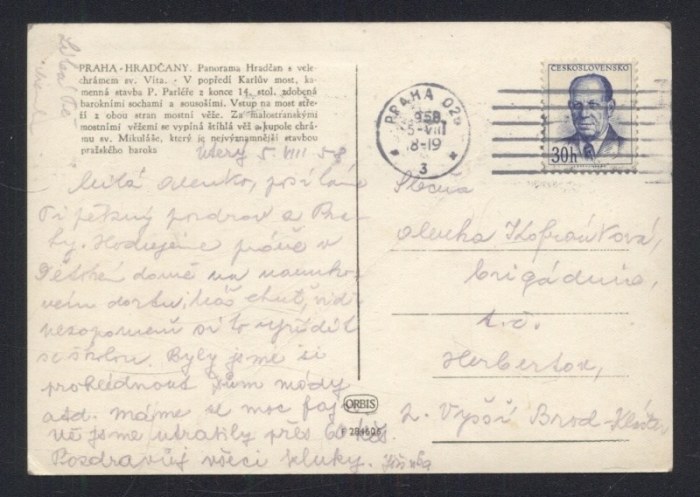 PRAHA - HRADČANY. Panorama Hradčan s vele-
chrámem sv. Víta. - V popředí Karlův most, ka-
menná stavba P. Parléře z konce 14. stol. zdobená
barokními sochami a sousošími. Vstup na most stře-
ží z obou stran mostní věže. Za malostranskými
mostními věžemi se vypíná štíhlá věž a kupole chrá-
mu sv. Mikuláše, který je nejvýznamnější stavbou
pražského baroka
Úterý 5. VIII 58
Milá Alenko, posíláme
Ti pěkný pozdrav z Pra-
hy. Hodujeme právě v
Dětském domě na
dortu, chuť,
nezapomeň si to vyřídit
se školou. Byly jsme si
prohlédnout dům módy
atd. máme se moc
jsme utratily přes 60 kčs.
Pozdravuj všecí kluky.
ČESKOSLOVENSKO
30h
PRAHA 029
1958
5-VIII
18-19
3
Slečna
Alenka
brigádnice,
t. č.
Herbertov,
Vyšší Brod-Klášter
ORBIS